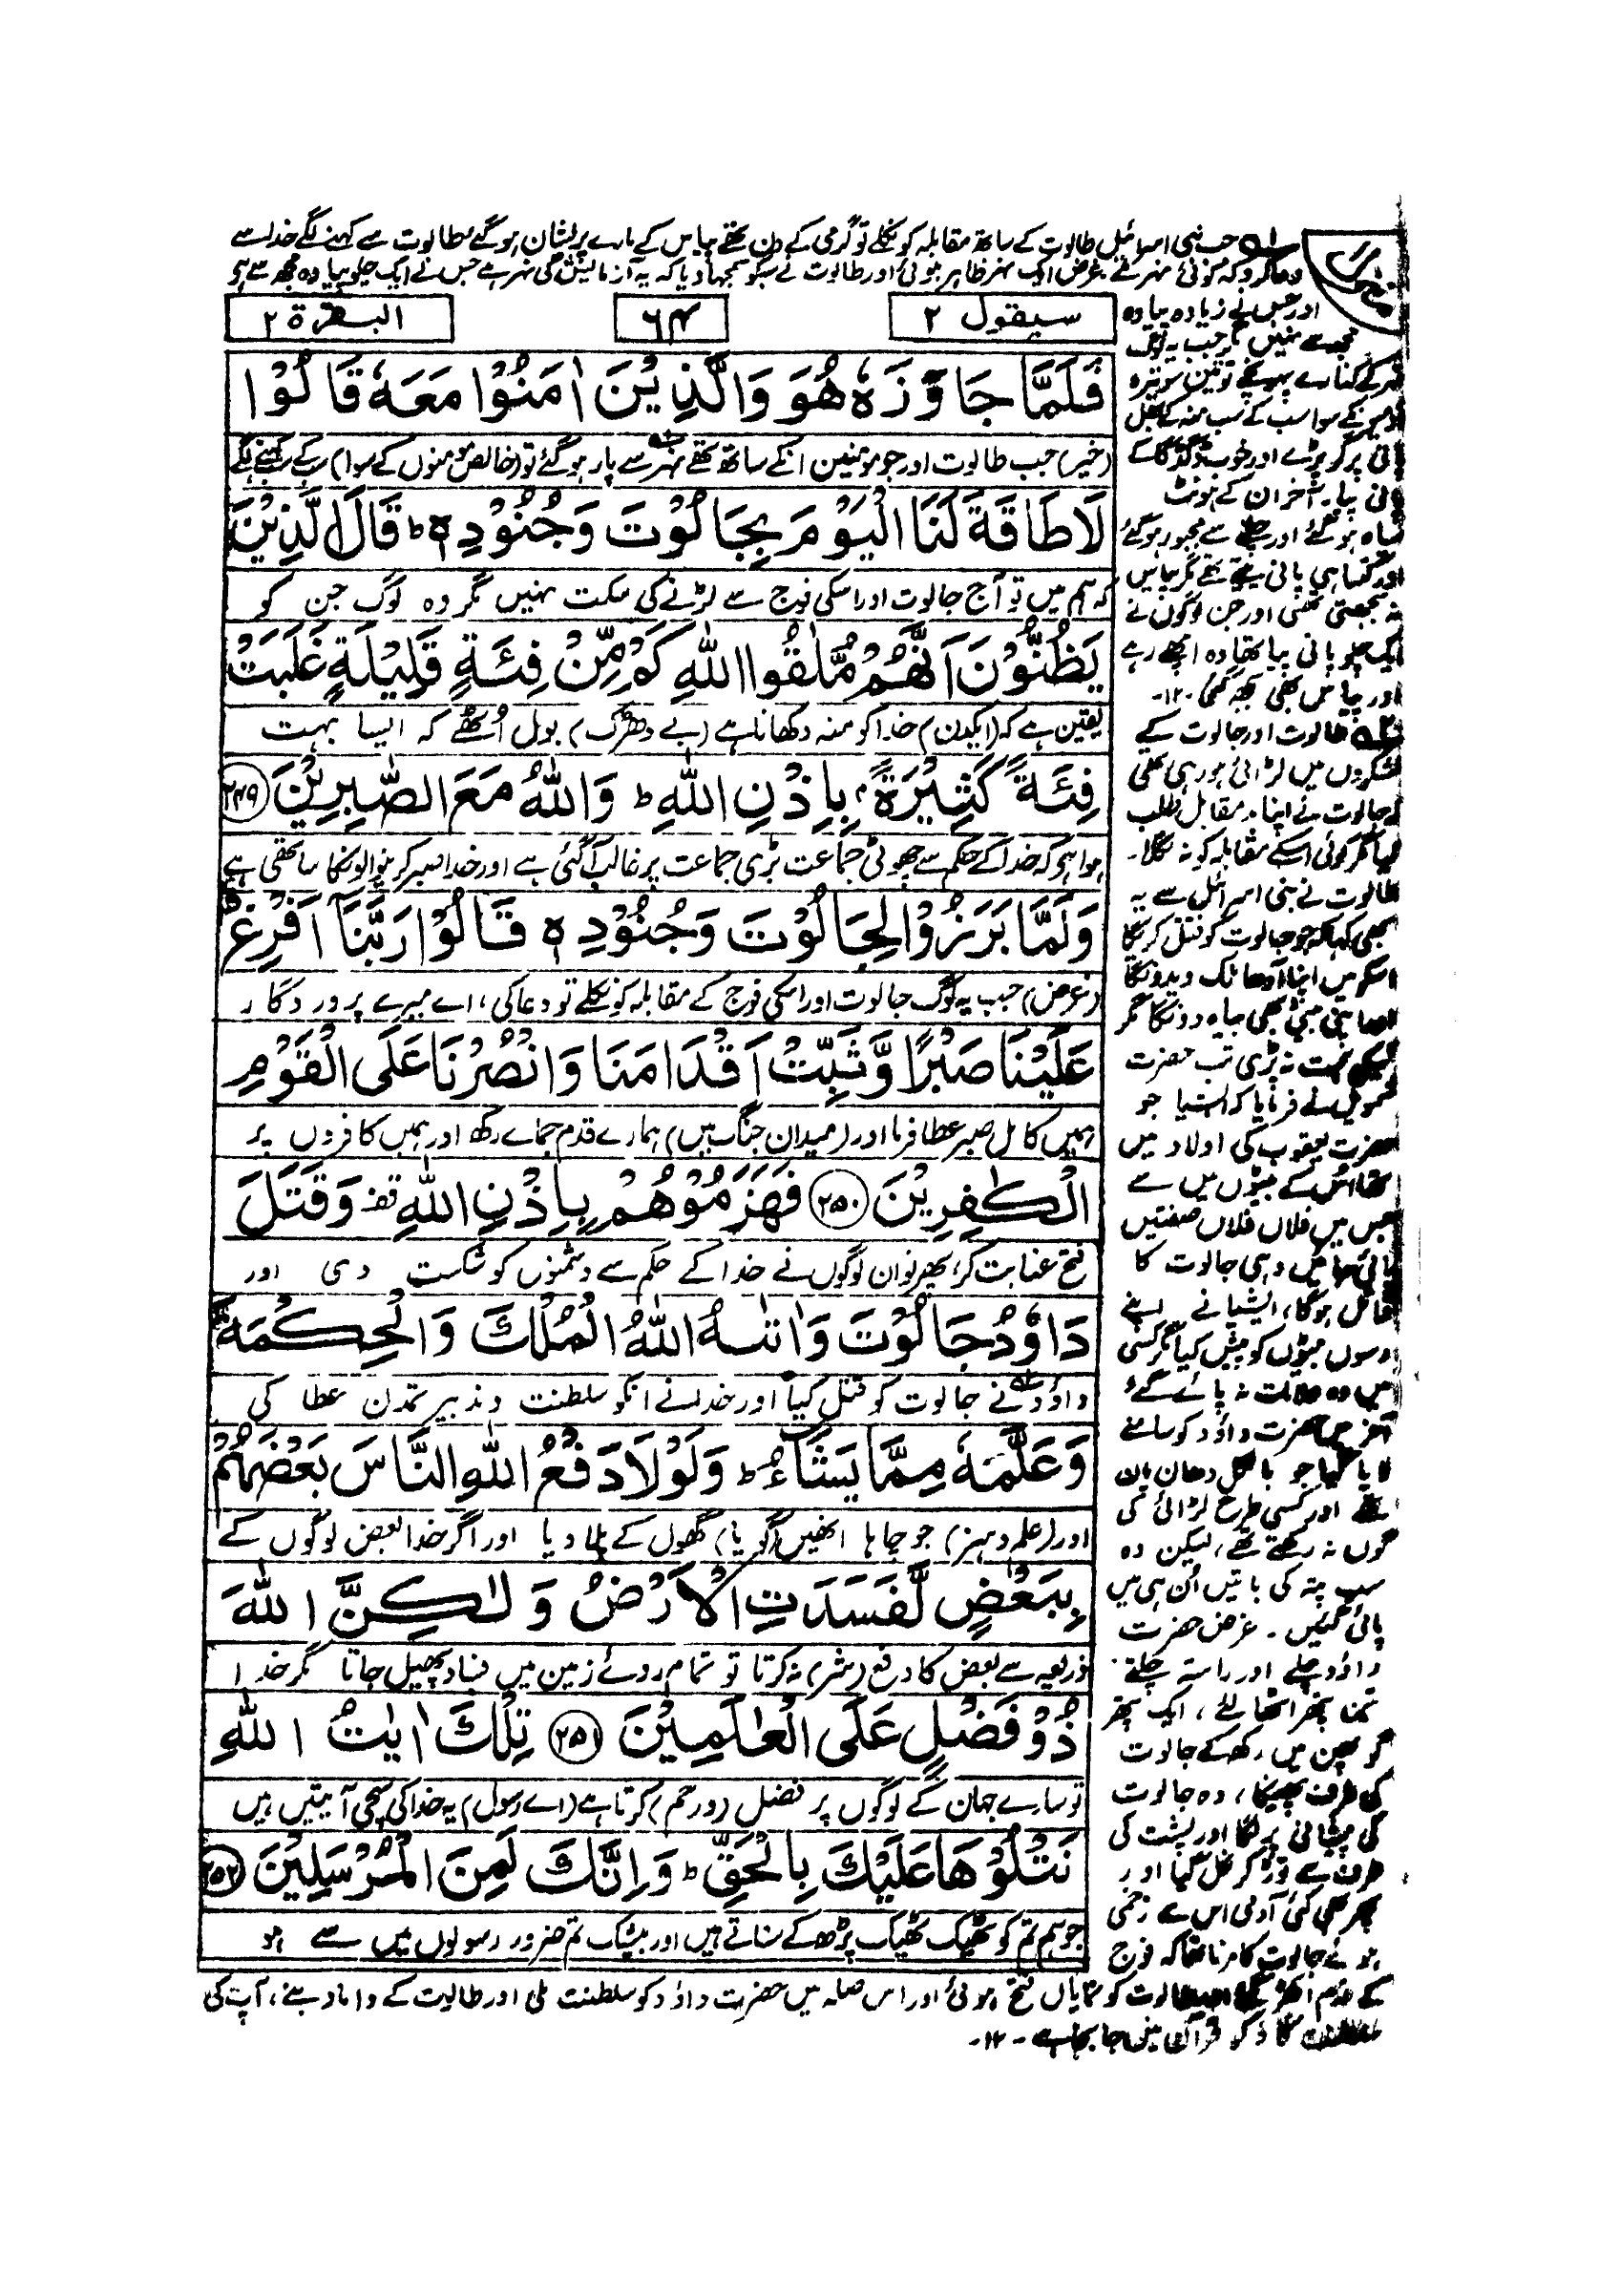 له جب بنی اسرائیل طالوت کے ساتھ مقابلہ کو نکلے تو گرمی کے دن تھے پیاس کے مارے پریشان ہو گئے طالوت سے کہنے لگے خدا سے
دعا کرو کہ کوئی نہر ملے غرض ایک نہر ظاہر ہوئی اور طالوت نے سبکو سمجھا دیا کہ یہ آزمائیش کی نہر ہے جس نے ایک چلو پیا وہ مجھ سے ہی
سیقول ۲
۶۴
البقرة ۲
فَلَمَّا جَاوَزَهٗ هُوَ وَالَّذِيْنَ اٰمَنُوْا مَعَهٗ قَالُوْا
(خیر) جب طالوت اور جو مومنین انکے ساتھ تھے نہر سے پار ہو گئے تو (خالص مومنوں کے سوا) سب کے سب کہنے لگے
لَاطَاقَةَ لَنَا الْيَوْمَ بِجَالُوْتَ وَجُنُوْدِهٖ ط قَالَ الَّذِيْنَ
کہ ہم میں تو آج جالوت اور اسکی فوج سے لڑنے کی سکت نہیں مگر وہ لوگ جن کو
يَظُنُّوْنَ اَنَّهُمْ مُّلٰقُوا اللّٰهِ كَمْ مِّنْ فِئَةٍ قَلِيْلَةٍ غَلَبَتْ
یقین ہے کہ (ایکدن) خدا کو منہ دکھانا ہے (بے دھڑک) بول اُٹھے کہ ایسا بہت
فِئَةً كَثِيْرَةً بِاِذْنِ اللّٰهِ ط وَاللّٰهُ مَعَ الصّٰبِرِيْنَ ۲۴۹
ہوا ہے کہ خدا کے حکم سے چھوٹی جماعت بڑی جماعت پر غالب آ گئی ہے اور خدا صبر کرنیوالونکا ساتھی ہے
وَلَمَّا بَرَزُوْا لِجَالُوْتَ وَجُنُوْدِهٖ قَالُوْا رَبَّنَآ اَفْرِغْ
(غرض) جب یہ لوگ جالوت اور اسکی فوج کے مقابلہ کو نکلے تو دعا کی، اے میرے پروردگار
عَلَيْنَا صَبْرًا وَّثَبِّتْ اَقْدَامَنَا وَانْصُرْنَا عَلَى الْقَوْمِ
ہمیں کامل صبر عطا فرما اور (میدان جنگ میں) ہمارے قدم جمائے رکھ اور ہمیں کافروں پر
الْكٰفِرِيْنَ ۲۵۰ فَهَزَمُوْهُمْ بِاِذْنِ اللّٰهِ قف وَقَتَلَ
فتح عنایت کر، پھر تو ان لوگوں نے خدا کے حکم سے دشمنوں کو شکست دی اور
دَاوٗدُ جَالُوْتَ وَاٰتٰىهُ اللّٰهُ الْمُلْكَ وَالْحِكْمَةَ
داؤد نے جالوت کو قتل کیا اور خدا نے انکو سلطنت و تدبیر تمدن عطا کی
وَعَلَّمَهٗ مِمَّا يَشَآءُ ط وَلَوْلَا دَفْعُ اللّٰهِ النَّاسَ بَعْضَهُمْ
اور (علم و ہنر) جو چاہا انھیں (گویا) گھول کے پلا دیا اور اگر خدا بعض لوگوں کے
بِبَعْضٍ لَّفَسَدَتِ الْاَرْضُ وَلٰكِنَّ اللّٰهَ
ذریعہ سے بعض کا دفع (شر) نہ کرتا تو تمام روئے زمین میں فساد پھیل جاتا مگر خدا
ذُوْ فَضْلٍ عَلَى الْعٰلَمِيْنَ ۲۵۱ تِلْكَ اٰيٰتُ اللّٰهِ
تو سارے جہان کے لوگوں پر فضل (و رحم) کرتا ہے (اے رسول) یہ خدا کی سچی آیتیں ہیں
نَتْلُوْهَا عَلَيْكَ بِالْحَقِّ ط وَاِنَّكَ لَمِنَ الْمُرْسَلِيْنَ ۲۵۲
جو ہم تم کو ٹھیک ٹھیک پڑھ کے سناتے ہیں اور بیشک تم ضرور رسولوں میں سے ہو
اور جس نے زیادہ پیا وہ
مجھ سے نہیں مگر جب یہ لوگ
نہر کے کنارے پہونچے تو تین سو تیرہ
کے سوا سب کے سب منہ کے بل
پانی پر گر پڑے اور خوب
پانی پیا۔ آخر ان کے ہونٹ
سیاہ ہو گئے اور چلنے سے مجبور ہو گئے
اور کتنا ہی پانی پیتے تھے مگر پیاس
نہ بجھتی تھی اور جن لوگوں نے
ایک چلو پانی پیا تھا وہ اچھے رہے
اور پیاس بھی بجھ گئی۔ ۱۲۔
طالوت اور جالوت کے
لشکروں میں لڑائی ہو رہی تھی
جالوت نے اپنا مقابل طلب
کیا مگر کوئی اسکے مقابلہ کو نہ نکلا۔
طالوت نے بنی اسرائیل سے یہ
بھی کہا کہ جو جالوت کو قتل کریگا
اسکو میں اپنا آدھا ملک دیدونگا
اور اپنی بیٹی بھی بیاہ دونگا مگر
کسی کی ہمت نہ پڑی تب حضرت
شموئیل نے فرمایا کہ ایشیا جو
حضرت یعقوب کی اولاد میں
تھا اس کے بیٹوں میں سے
جس میں فلاں فلاں صفتیں
پائی جائیں وہی جالوت کا
قاتل ہوگا، ایشیا نے اپنے
دسوں بیٹوں کو پیش کیا مگر کسی
میں وہ علامت نہ پائے گئے
آخر میں حضرت داؤد کو سامنے
لایا گیا جو بالکل دھان پان
تھے اور کسی طرح لڑائی کی
گوں نہ رکھتے تھے، لیکن وہ
سب پتہ کی باتیں اُن ہی میں
پائی گئیں۔ غرض حضرت
داؤد چلے اور راستہ چلتے
تین پتھر اٹھا لئے، ایک پتھر
گو پھن میں رکھ کے جالوت
کی طرف پھینکا، وہ جالوت
کی پیشانی پر لگا اور پشت کی
طرف سے توڑ کر نکل گیا اور
پھر بھی کئی آدمی اس سے زخمی
ہوئے جالوت کا مرنا تھا کہ فوج
کے قدم اکھڑ گئے اور طالوت کو نمایاں فتح ہوئی اور اس صلہ میں حضرت داؤد کو سلطنت ملی اور طالوت کے داماد بنے، آپ کی
سلطنت کا ذکر قرآن میں جا بجا ہے۔ ۱۲۔